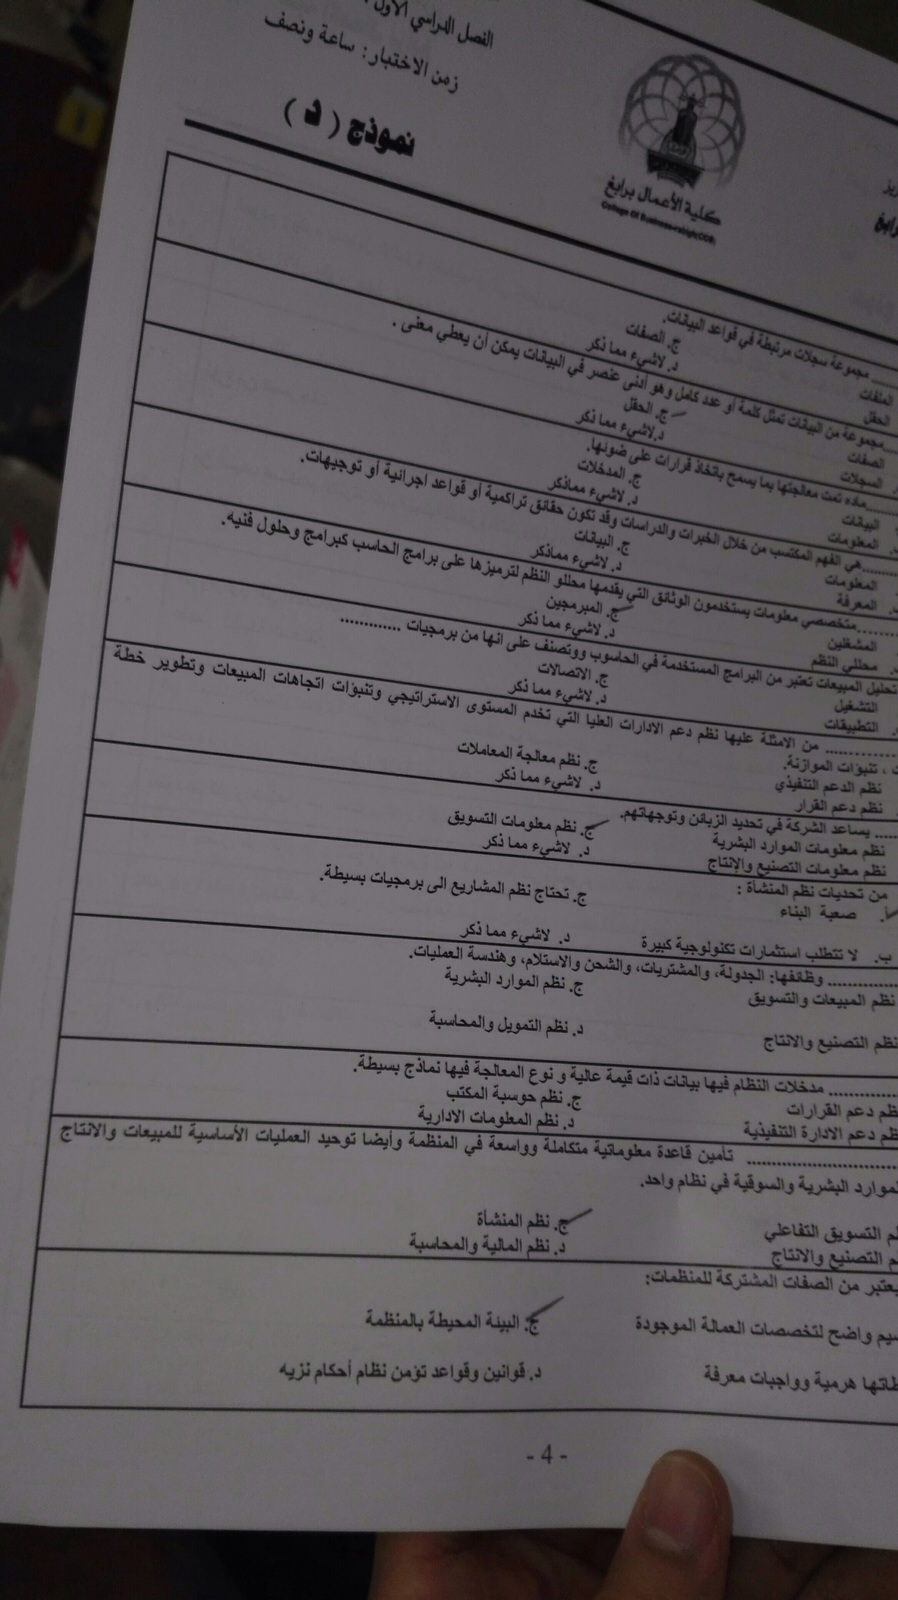 الفصل الدراسي الأول
زمن الاختبار: ساعة ونصف
نموذج ( د )
كلية الأعمال برابغ
College Of Business-rabigh(COB)
........ مجموعة سجلات مرتبطة في قواعد البيانات.
الملفات
ج. الصفات
الحقل
د. لاشيء مما ذكر
........ مجموعة من البيانات تمثل كلمة أو عدد كامل وهو أدنى عنصر في البيانات يمكن أن يعطي معنى .
الصفات
ج. الحقل
السجلات
د.لاشيء مما ذكر
........ماده تمت معالجتها بما يسمح باتخاذ قرارات على ضوئها.
البيانات
ج. المدخلات
المعلومات
د. لاشيء مماذكر
........هي الفهم المكتسب من خلال الخبرات والدراسات وقد تكون حقائق تراكمية أو قواعد اجرائية أو توجيهات.
المعلومات
ج. البيانات
المعرفة
د. لاشيء مماذكر
........متخصصي معلومات يستخدمون الوثائق التي يقدمها محللو النظم لترميزها على برامج الحاسب كبرامج وحلول فنيه.
المشغلين
ج. المبرمجين
محللي النظم
د. لاشيء مما ذكر
تحليل المبيعات تعتبر من البرامج المستخدمة في الحاسوب ووتصنف على انها من برمجيات .............
التشغيل
ج. الاتصالات
التطبيقات
د. لاشيء مما ذكر
........... من الامثلة عليها نظم دعم الادارات العليا التي تخدم المستوى الاستراتيجي وتنبؤات اتجاهات المبيعات وتطوير خطة
، تنبؤات الموازنة.
نظم الدعم التنفيذي
ج. نظم معالجة المعاملات
نظم دعم القرار
د. لاشيء مما ذكر
..... يساعد الشركة في تحديد الزبائن وتوجهاتهم.
نظم معلومات الموارد البشرية
ج. نظم معلومات التسويق
نظم معلومات التصنيع والإنتاج
د. لاشيء مما ذكر
من تحديات نظم المنشأة :
أ. صعبة البناء
ج. تحتاج نظم المشاريع الى برمجيات بسيطة.
ب. لا تتطلب استثمارات تكنولوجية كبيرة
د. لاشيء مما ذكر
............ وظائفها: الجدولة، والمشتريات، والشحن والاستلام، وهندسة العمليات.
نظم المبيعات والتسويق
ج. نظم الموارد البشرية
نظم التصنيع والانتاج
د. نظم التمويل والمحاسبة
............ مدخلات النظام فيها بيانات ذات قيمة عالية و نوع المعالجة فيها نماذج بسيطة.
نظم دعم القرارات
ج. نظم حوسبة المكتب
نظم دعم الادارة التنفيذية
د. نظم المعلومات الادارية
............ تأمين قاعدة معلوماتية متكاملة وواسعة في المنظمة وأيضا توحيد العمليات الأساسية للمبيعات والانتاج
الموارد البشرية والسوقية في نظام واحد.
التسويق التفاعلي
ج. نظم المنشأة
التصنيع والانتاج
د. نظم المالية والمحاسبة
يعتبر من الصفات المشتركة للمنظمات:
واضح لتخصصات العمالة الموجودة
ج. البيئة المحيطة بالمنظمة
هرمية وواجبات معرفة
د. قوانين وقواعد تؤمن نظام أحكام نزيه
- 4 -